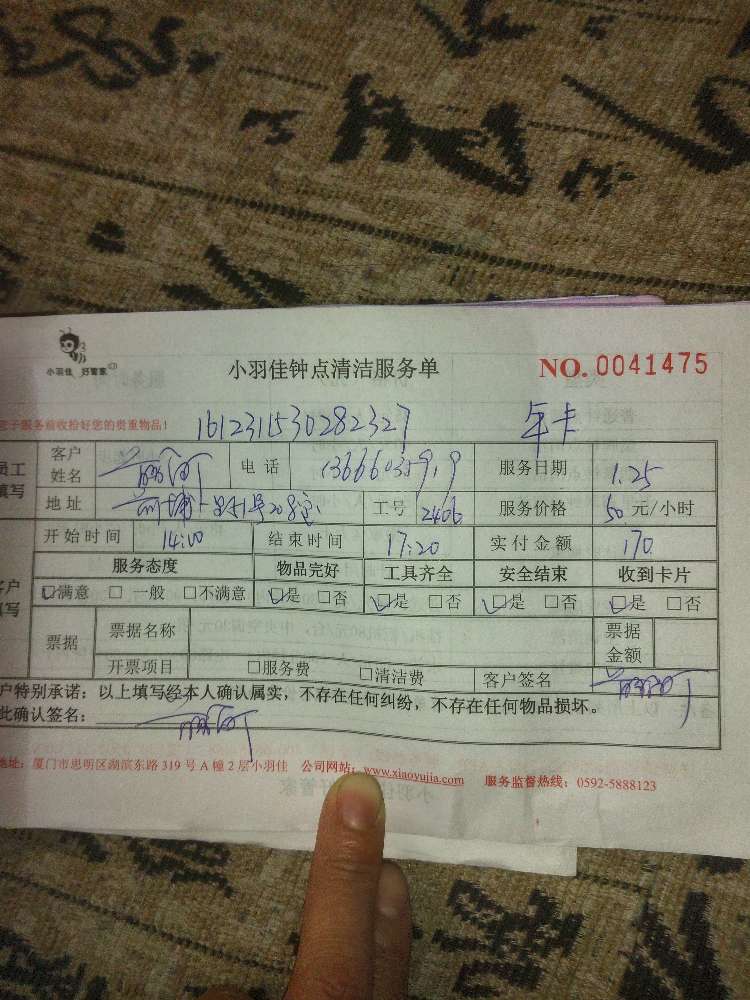 小羽佳 好管家
小羽佳钟点清洁服务单
NO. 0041475
您于服务前收拾好您的贵重物品!
161231530282327 年卡
员工填写
客户姓名 电话 服务日期 1.25
地址 工号 2406 服务价格 50 元/小时
开始时间 14:00 结束时间 17:20 实付金额 170
客户填写
服务态度 物品完好 工具齐全 安全结束 收到卡片
☑满意 □一般 □不满意 ☑是 □否 ☑是 □否 ☑是 □否 ☑是 □否
票据 票据名称 票据金额
开票项目 □服务费 □清洁费 客户签名
户特别承诺:以上填写经本人确认属实,不存在任何纠纷,不存在任何物品损坏。
此确认签名:
地址:厦门市思明区湖滨东路 319 号 A 幢 2 层小羽佳 公司网站:www.xiaoyujia.com 服务监督热线:0592-5888123